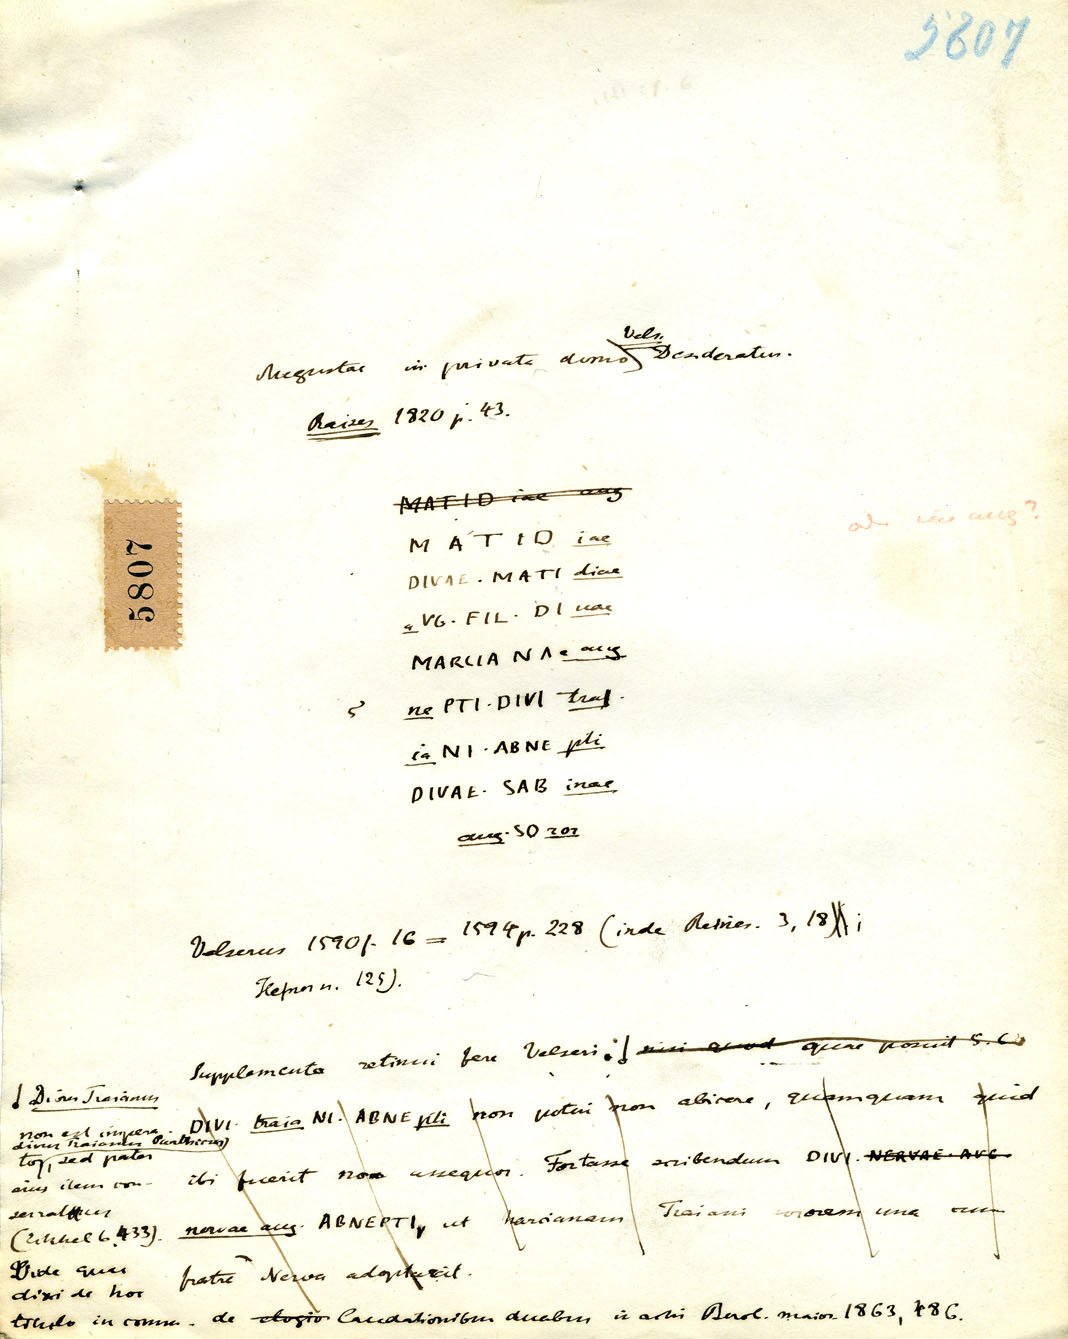 5807
Vels.
Augustae in privata domo Desideratus.
Raiser 1820 p. 43.
MATID iae aug
MATID iae
ad iae aug?
DIVAE · MATI diae
aVG · FIL · DI uae
MARCIANAe aug
5 nePTI · DIVI tra
iaNI · ABNE pti
DIVAE · SAB inae
aug · SO ror
5807
Velserus 1590 p. 16 = 1594 p. 228 (inde Reines. 3, 18);
Hefner n. 125).
Supplementa retinui fere Velseri. nisi quod quae posuit S. 6
DIVI · traiaNI · ABNEpti non potui non abicere, quamquam quid
ibi fuerit non assequor. Fortasse scribendum DIVI · NERVAE · AVG
nervae aug. ABNEPTI, ut Marcianam Traiani sororem una cum
fratre Nerva adoptarit.
Divus Traianus
non est impera-
divus Traianus Parthicus)
tor, sed pater
eius item con-
secratus
(Eckhel 6, 433).
Vide quae
dixi de hoc
titulo in comm. de elogio laudationibus duabus in actis Berol. maior. 1863, 486.